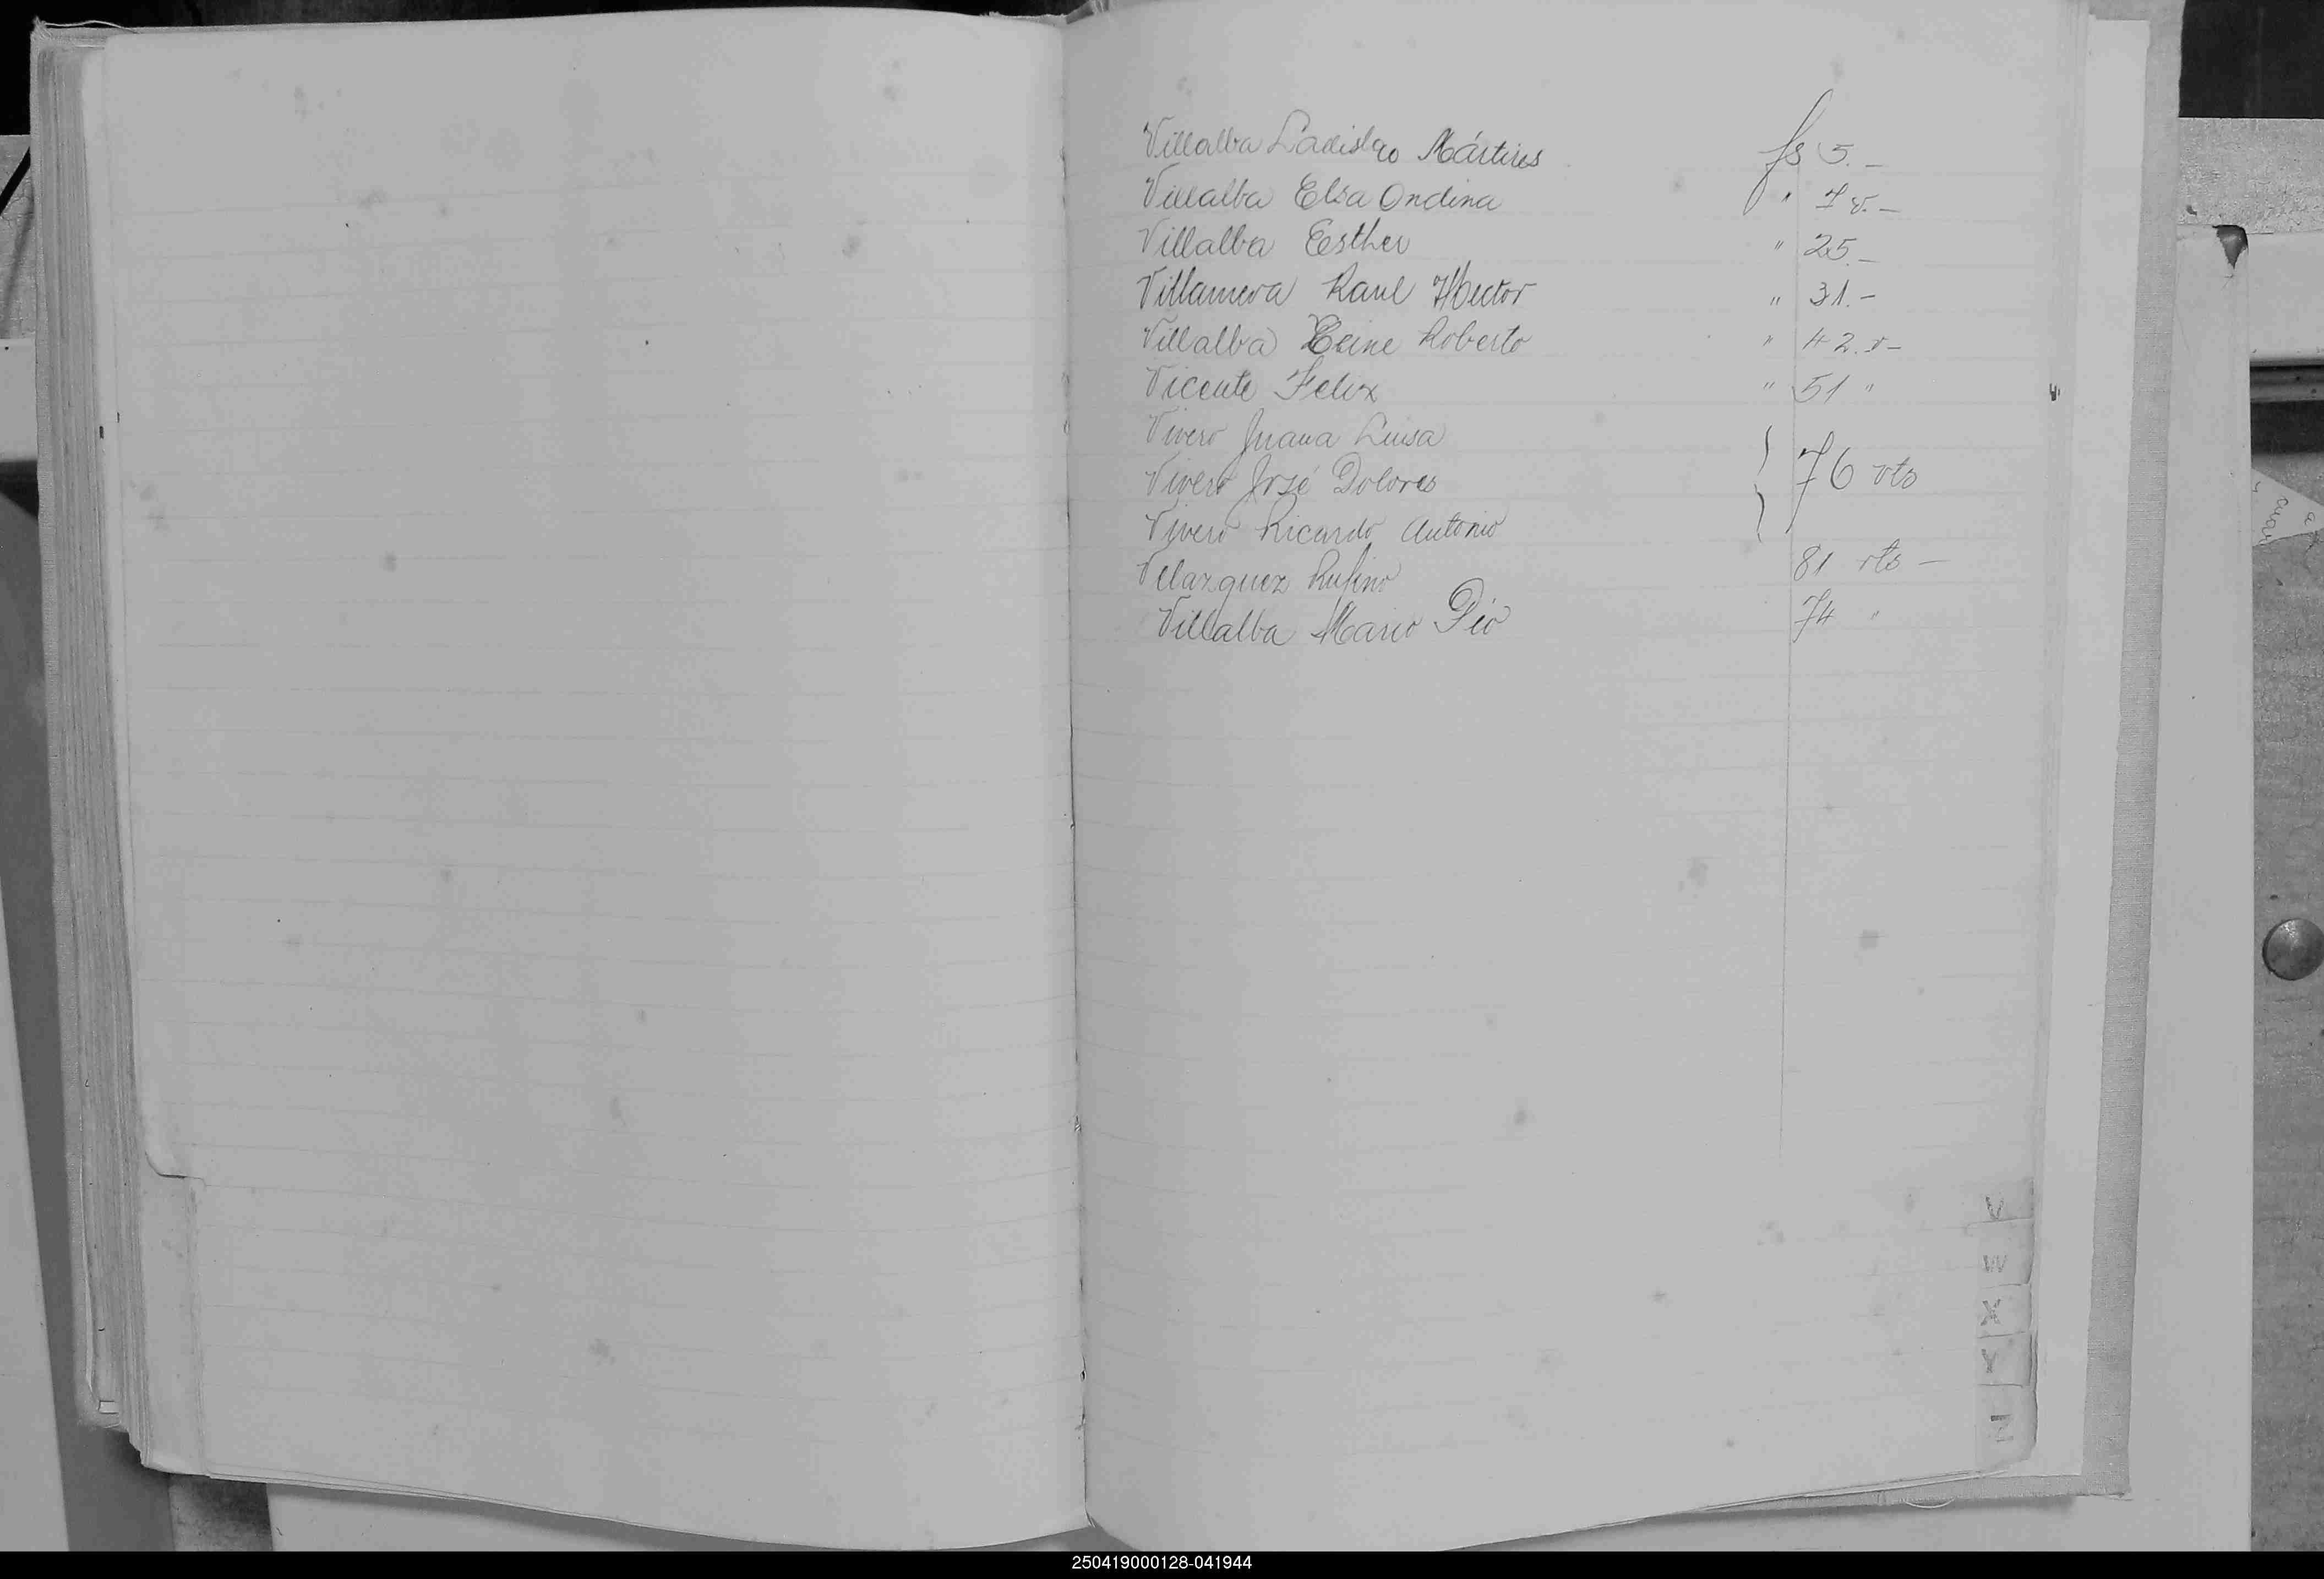 Villalba Ladislao Mártires fs 5.-
Villalba Elsa Ondina " 7 v.-
Villalba Esther " 25.-
Villanueva Raul Hector " 31.-
Villalba Roberto " 42.v-
Vicente Felix " 51 "
Vivero Juana Luisa
Vivero José Dolores } 76 vto
Vivero Ricardo Antonio
Velazquez Rufino 81 vto -
Villalba Mario Pío 74 "
V
W
X
Y
Z
250419000128-041944